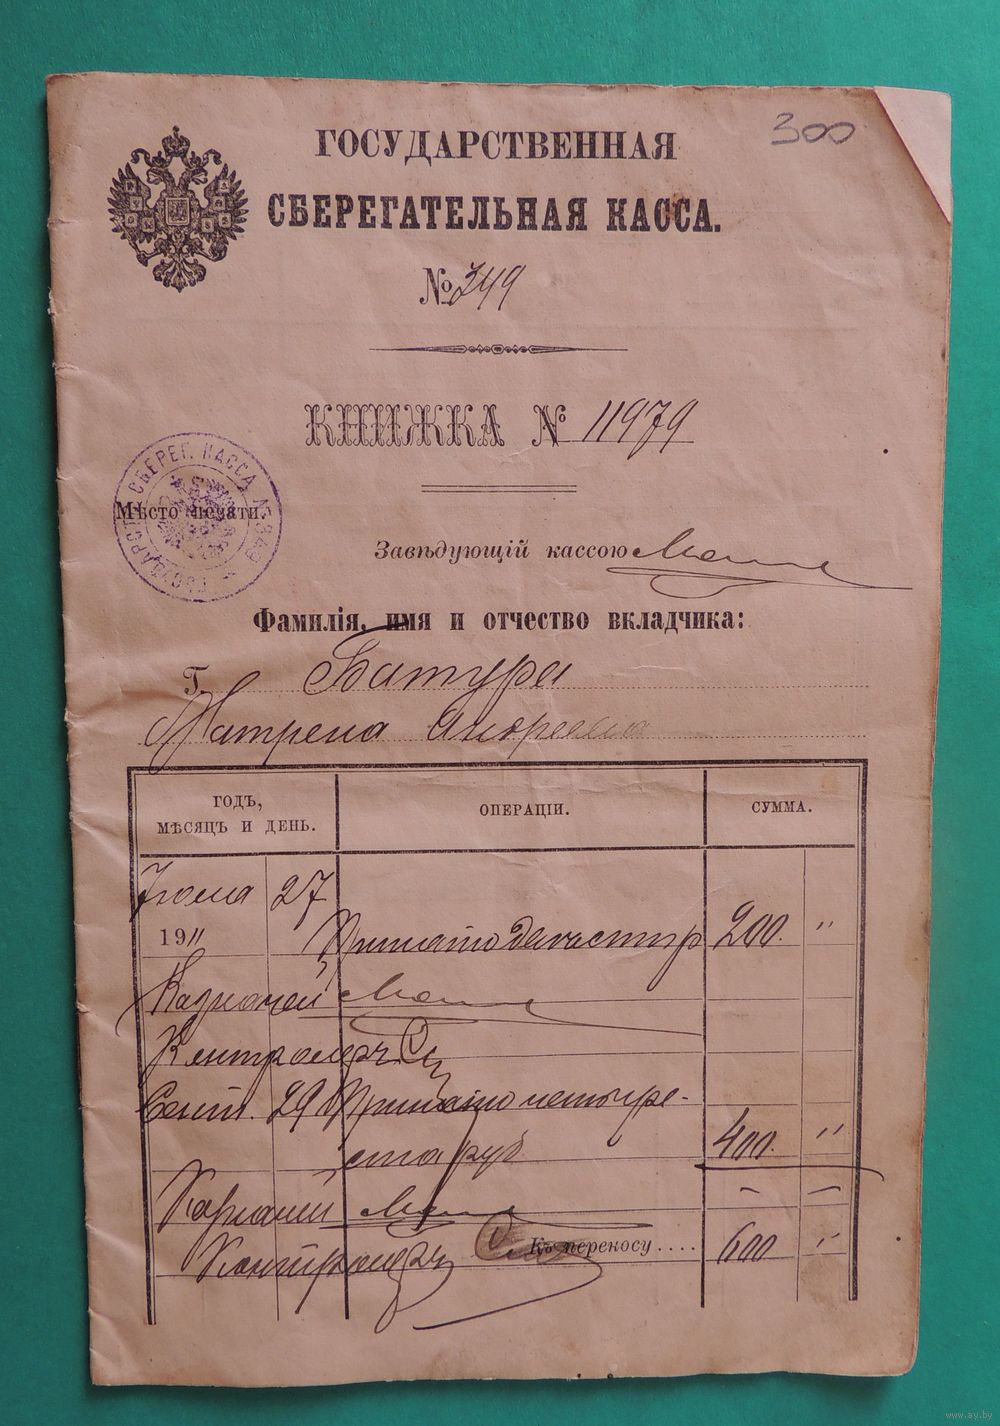 300
ГОСУДАРСТВЕННАЯ
СБЕРЕГАТЕЛЬНАЯ КАССА.
№ 349
КНИЖКА № 11979
ГОСУДАРСТ. СБЕРЕГ. КАССА № 349
Мѣсто печати.
Завѣдующій кассою
Фамилія, имя и отчество вкладчика:
Г. Батура
Матрена Андреевна
ГОДЪ,
МѢСЯЦЪ И ДЕНЬ.
ОПЕРАЦІИ.
СУММА.
Іюля 27
1911 Принято двѣсти р 200. "
Казначей
Контролеръ
Сент. 29 Принято четыре-
ста руб 400. "
Казначей
Контролеръ Къ переносу.... 600 "
www.ay.by